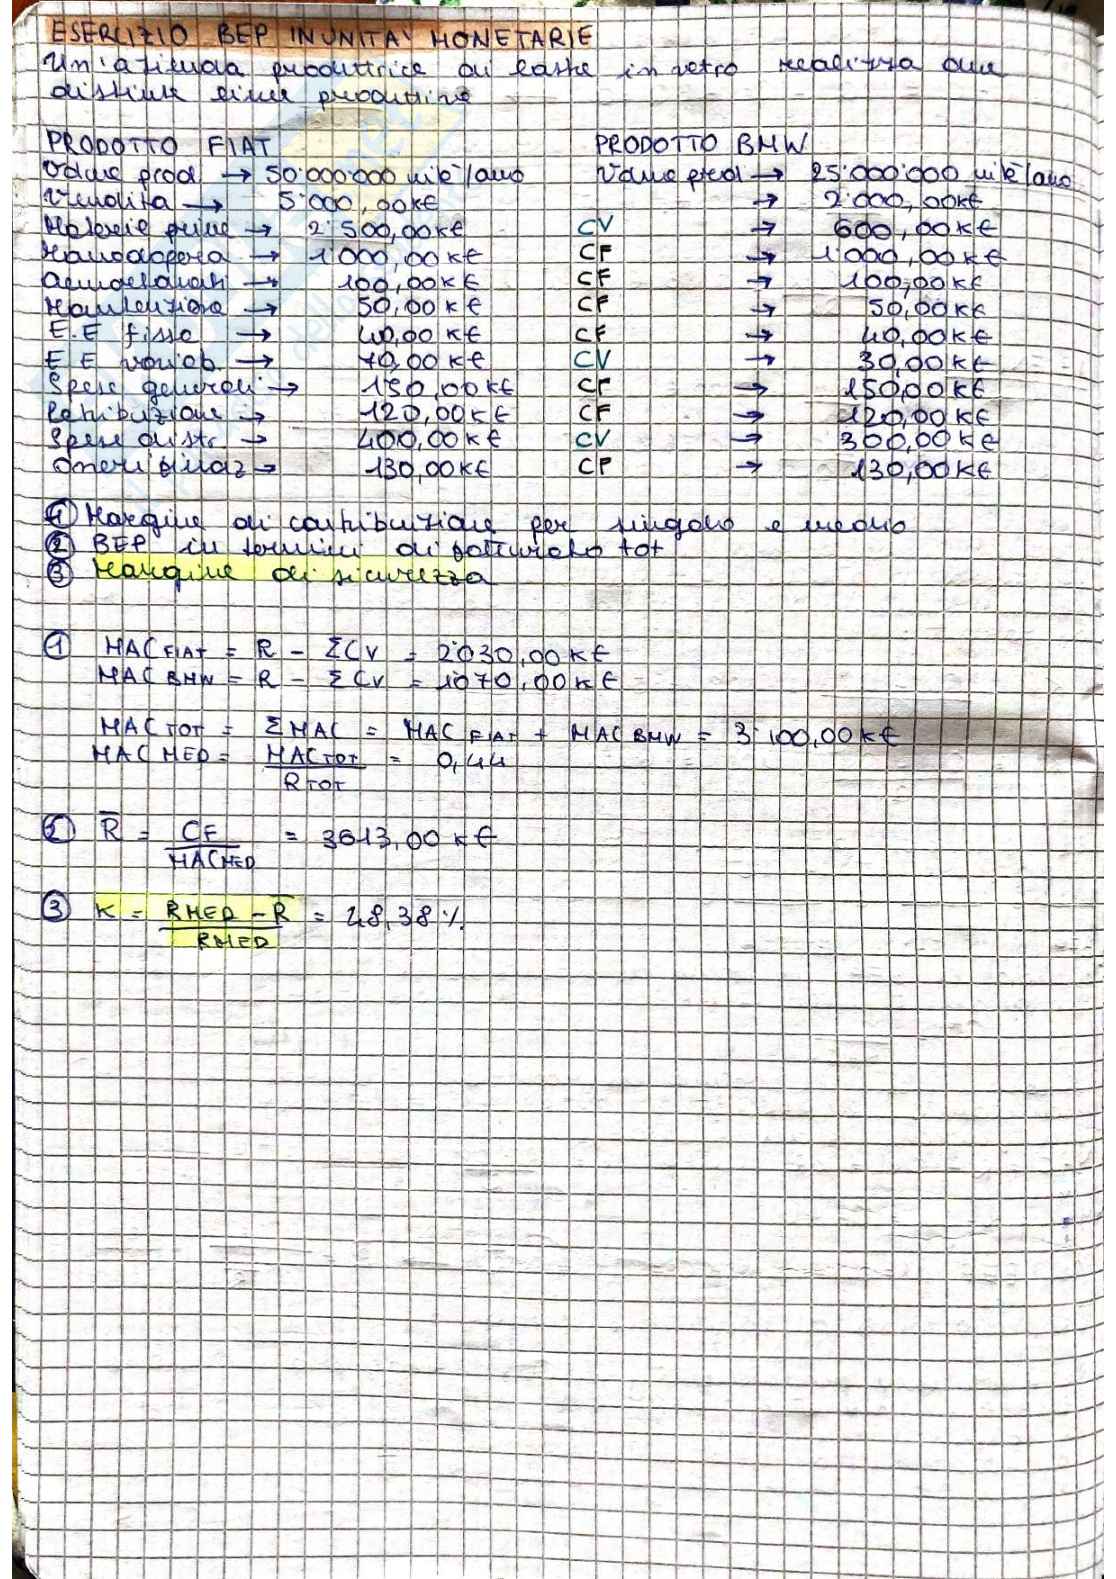 ESERCIZIO BEP IN UNITA' MONETARIE
Un'azienda produttrice di lastre in vetro realizza due
distinte linee produttive
PRODOTTO FIAT PRODOTTO BMW
Volume prod → 50'000'000 unità/anno Volume prod → 25'000'000 unità/anno
Vendita → 5'000,00k€ → 2'000,00k€
Materie prime → 2'500,00k€ CV → 600,00k€
Manodopera → 1'000,00k€ CF → 1'000,00k€
Ammortamenti → 100,00k€ CF → 100,00k€
Manutenzione → 50,00k€ CF → 50,00k€
E.E fissa → 40,00k€ CF → 40,00k€
E E variab. → 70,00k€ CV → 30,00k€
Spese generali → 150,00k€ CF → 150,00k€
Retribuzione → 120,00k€ CF → 120,00k€
Spese distr → 400,00k€ CV → 300,00k€
Oneri finaz → 130,00k€ CF → 130,00k€
① Margine di contribuzione per singolo e medio
② BEP in termini di fatturato tot
③ Margine di sicurezza
① MAC FIAT = R - ΣCV = 2'030,00k€
MAC BMW = R - ΣCV = 1070,00k€
MAC TOT = ΣMAC = MAC FIAT + MAC BMW = 3'100,00k€
MAC MED = MAC TOT / R TOT = 0,44
② R̅ = CF / MAC MED = 3613,00k€
③ K = RMED - R̅ / RMED = 48,38%